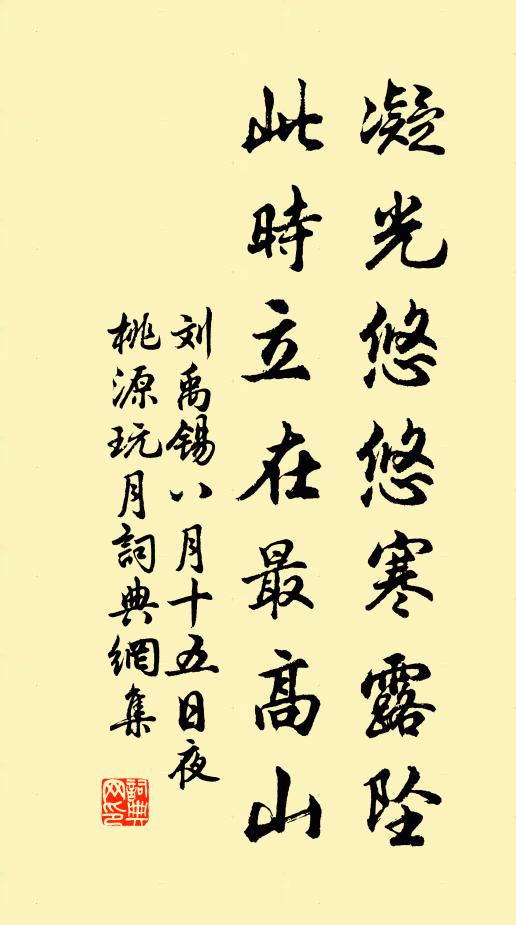 凝光悠悠寒露坠
此時立在最高山
刘禹锡八月十五日夜
桃源玩月詞典網集
詞典
网印